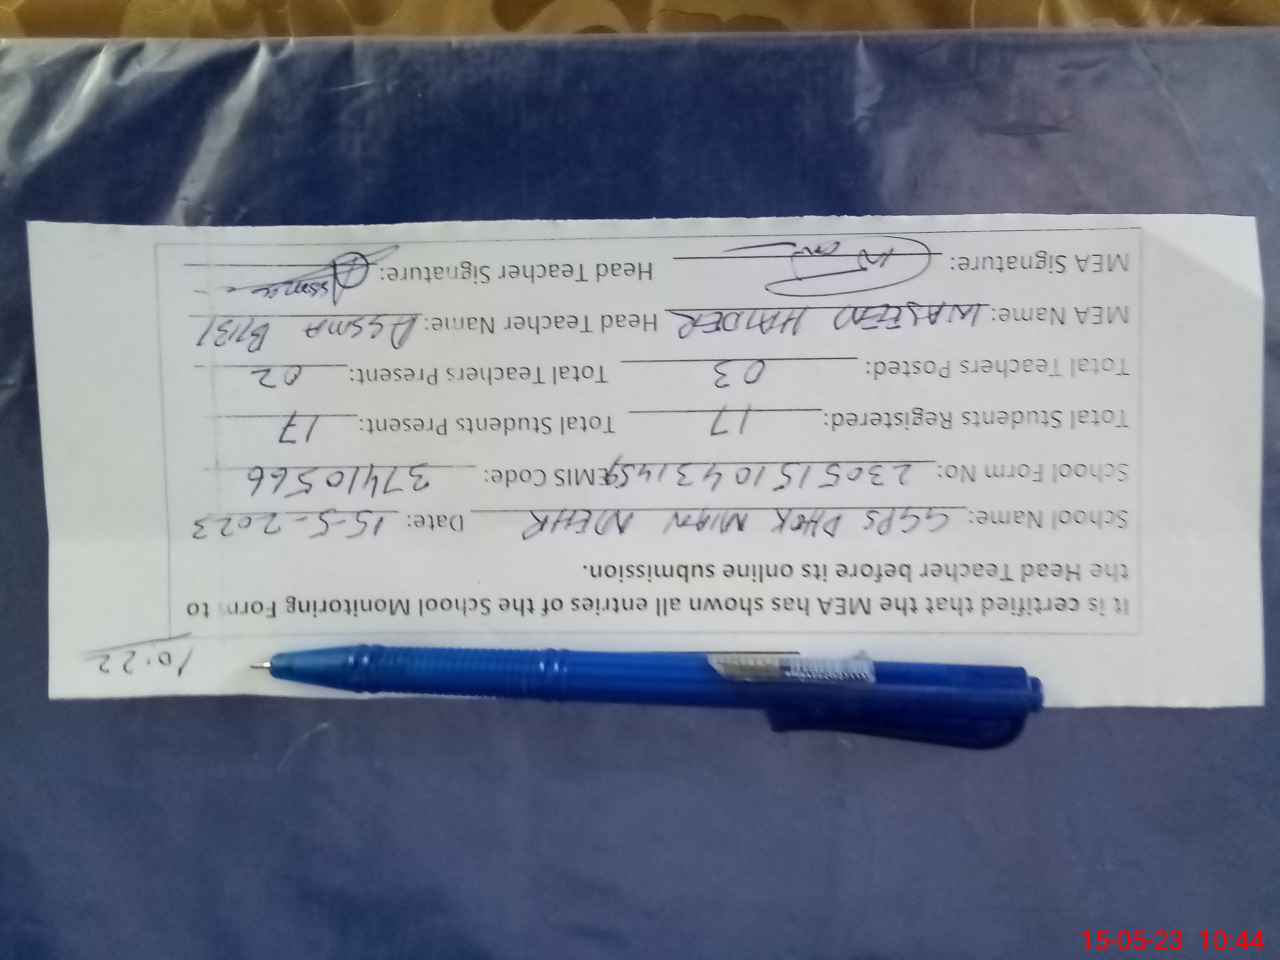 10:22
It is certified that the MEA has shown all entries of the School Monitoring Form to
the Head Teacher before its online submission.
School Name: GGPS DHOK MIAN NEHR Date: 15-5-2023
School Form No: 2305151043145 EMIS Code: 37410566
Total Students Registered: 17 Total Students Present: 17
Total Teachers Posted: 03 Total Teachers Present: 02
MEA Name: WASEEM HAIDER Head Teacher Name: ASSMA BIBI
MEA Signature: Head Teacher Signature: Assma
15-05-23 10:44